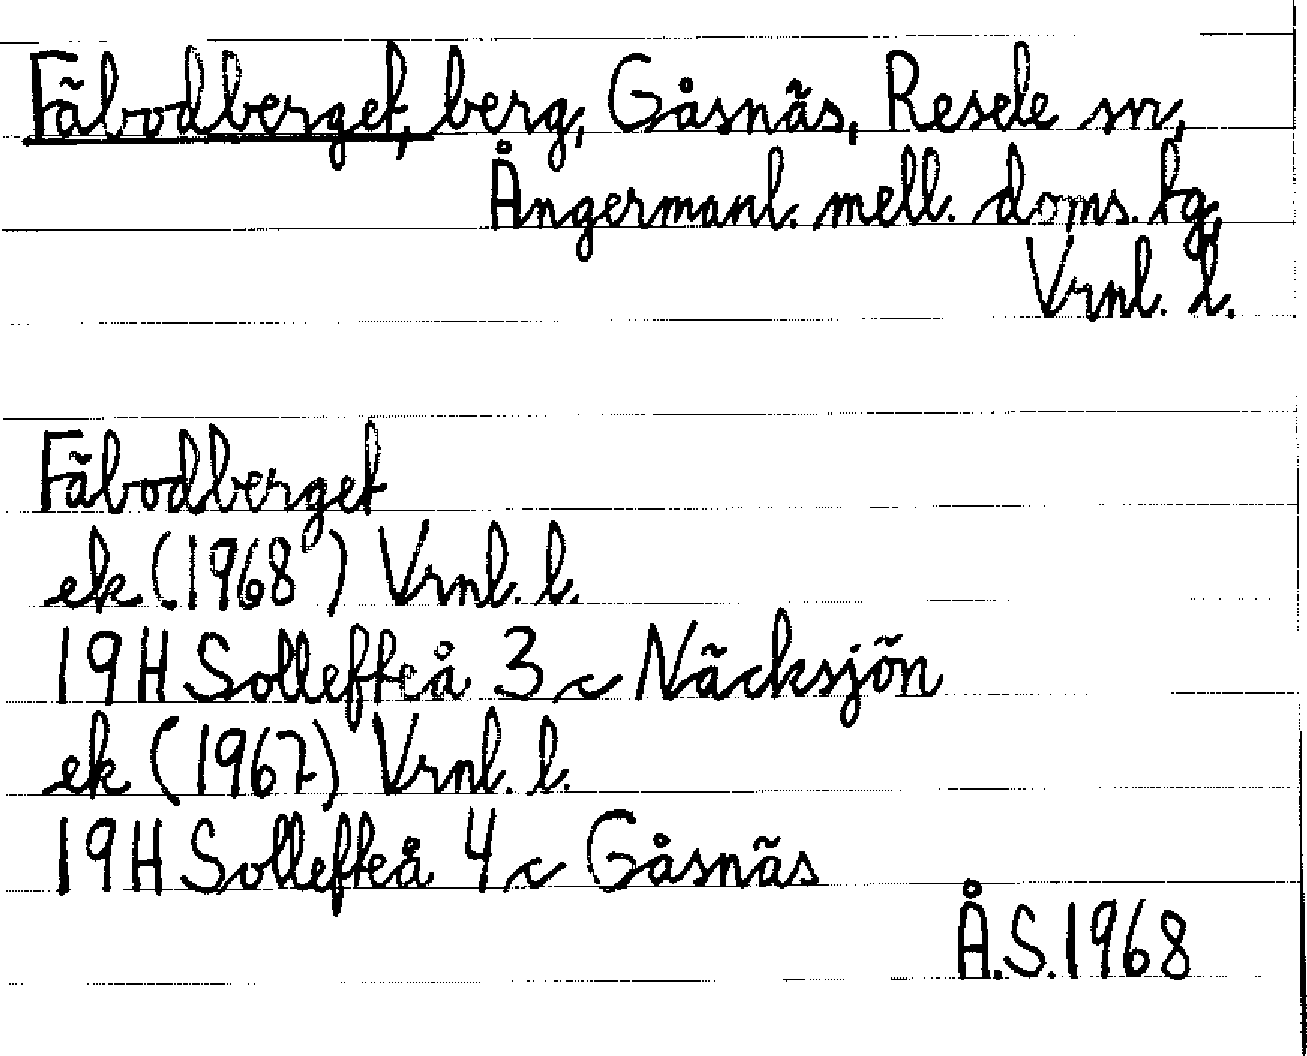 Fäbodberget, berg, Gåsnäs, Resele sn,
Ångermanl. mell. doms. tg,
Vrnl. l.
Fäbodberget
ek (1968) Vrnl. l.
19H Sollefteå 3 c Näcksjön
ek (1967) Vrnl. l.
19H Sollefteå 4 c Gåsnäs
Å.S. 1968